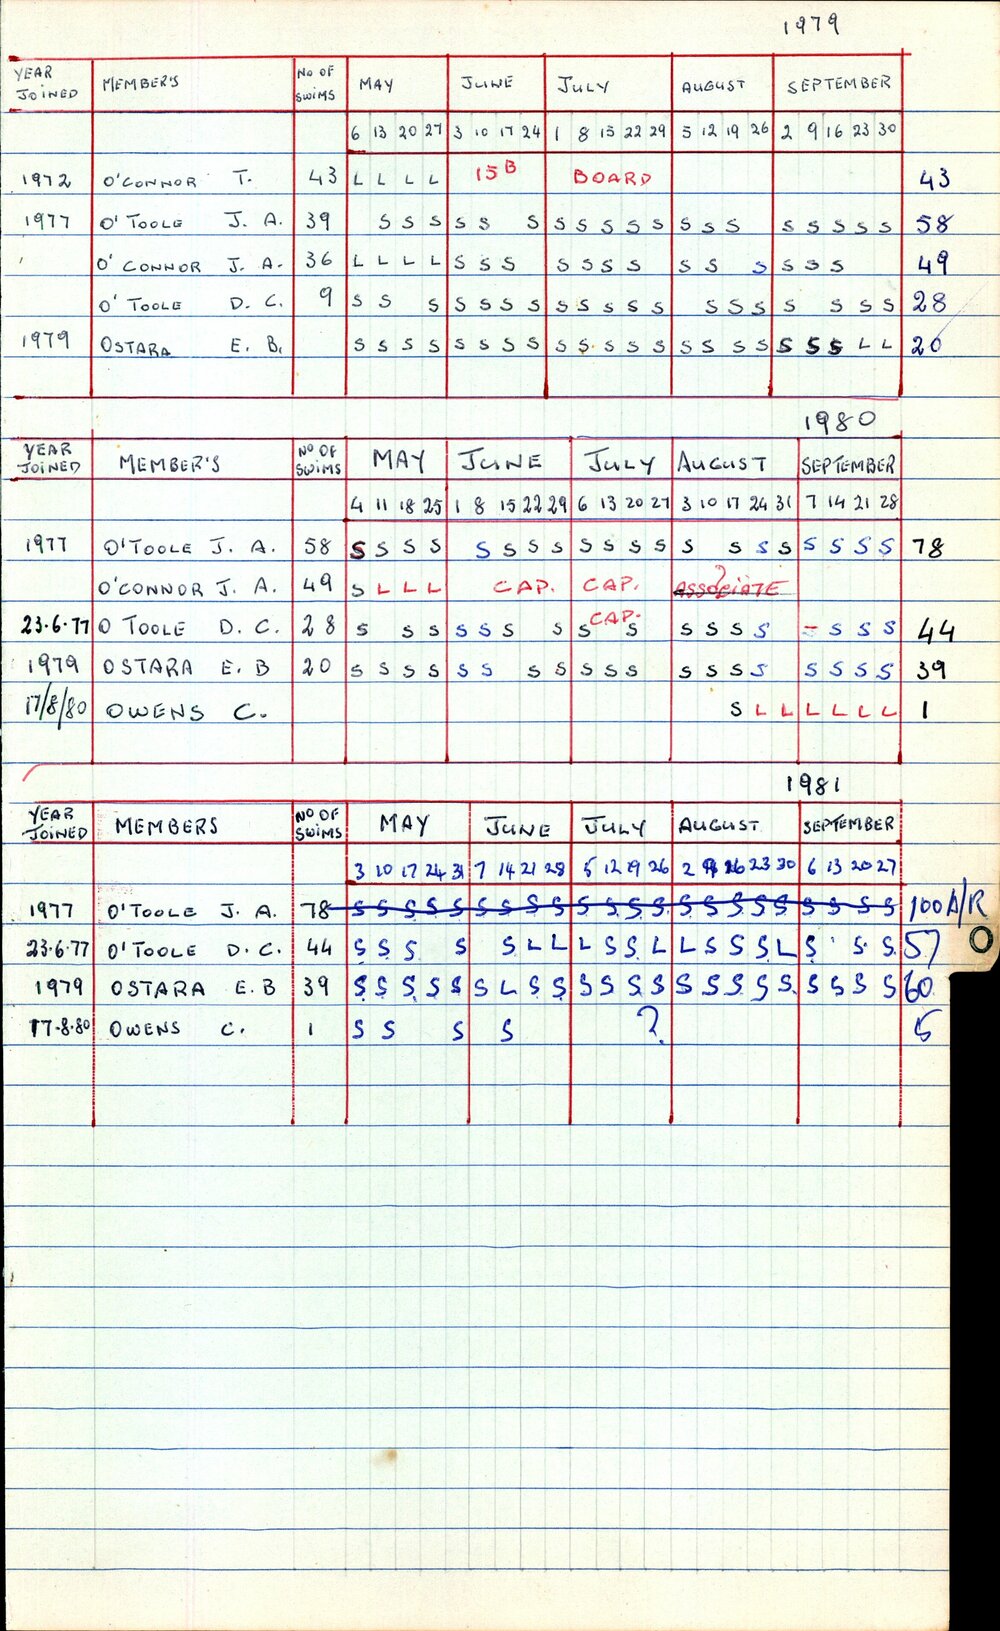 1979
YEAR JOINED MEMBER'S No OF SWIMS MAY JUNE JULY AUGUST SEPTEMBER
6 13 20 27 3 10 17 24 1 8 15 22 29 5 12 19 26 2 9 16 23 30
1972 O'CONNOR T. 43 L L L L 15 B BOARD 43
1977 O'TOOLE J. A. 39 S S S S S S S S S S S S S S S S S S S 58
O'CONNOR J. A. 36 L L L L S S S S S S S S S S S S S 49
O'TOOLE D. C. 9 S S S S S S S S S S S S S S S S S S S 28
1979 OSTARA E. B. S S S S S S S S S S S S S S S S S S S S L L 20
1980
YEAR JOINED MEMBER'S No OF SWIMS MAY JUNE JULY AUGUST SEPTEMBER
4 11 18 25 1 8 15 22 29 6 13 20 27 3 10 17 24 31 7 14 21 28
1977 O'TOOLE J. A. 58 S S S S S S S S S S S S S S S S S S S S 78
O'CONNOR J. A. 49 S L L L CAP. CAP. ASSOCIATE ?
23.6.77 O TOOLE D. C. 28 S S S S S S S S CAP. S S S S S – S S S 44
1979 OSTARA E. B 20 S S S S S S S S S S S S S S S S S S S 39
17/8/80 OWENS C. S L L L L L L 1
1981
YEAR JOINED MEMBERS NO OF SWIMS MAY JUNE JULY AUGUST SEPTEMBER
3 10 17 24 31 7 14 21 28 5 12 19 26 2 9 16 23 30 6 13 20 27
1977 O'TOOLE J. A. 78 S S S S S S S S S S S S S S S S S S S S S S 100 A/R
23.6.77 O'TOOLE D. C. 44 S S S S S L L L S S L L S S S L S S S 57
1979 OSTARA E. B 39 S S S S S S L S S S S S S S S S S S S S S S 60
17-8-80 OWENS C. 1 S S S S ? 5
O